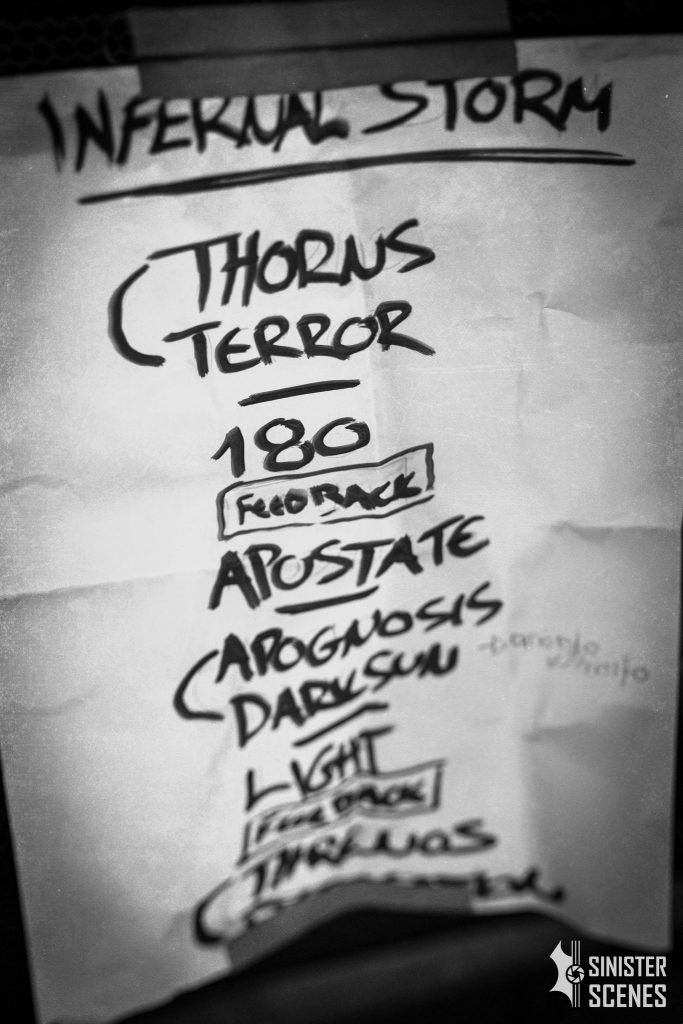 INFERNAL STORM
THORNS
TERROR
180
FEEDBACK
APOSTATE
APOGNOSIS
DARK SUN
LIGHT
FEEDBACK
THRENOS
SINISTER
SCENES